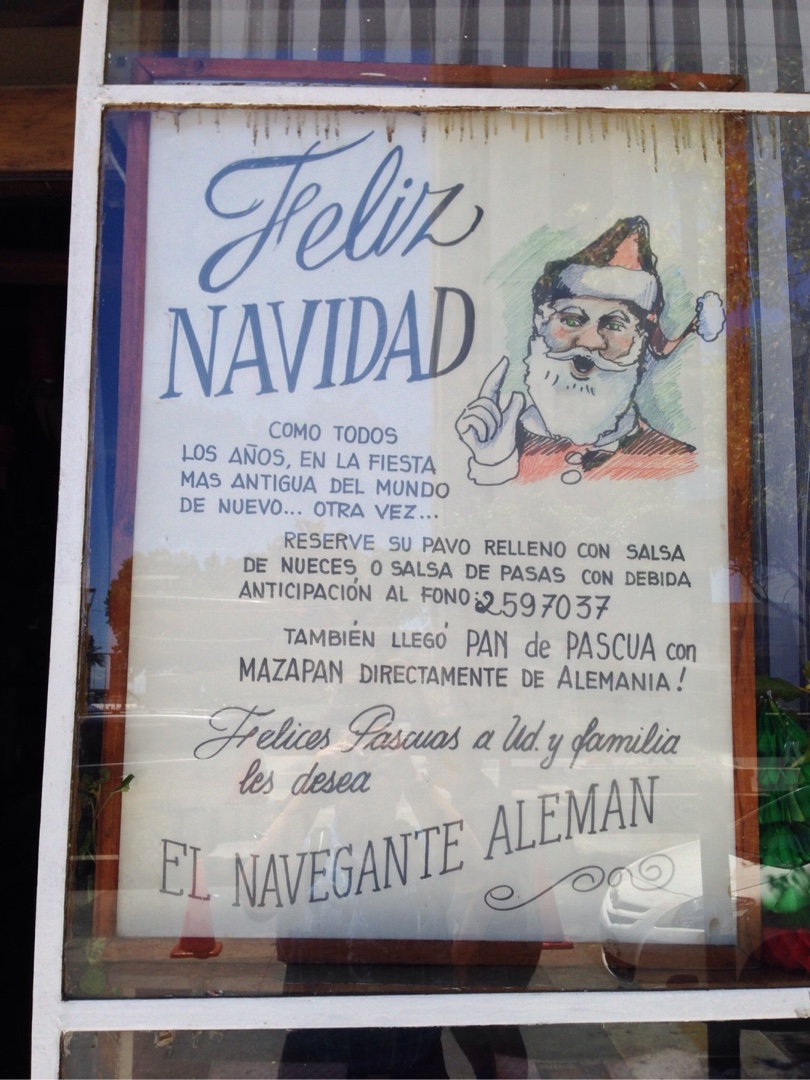 Feliz
NAVIDAD
COMO TODOS
LOS AÑOS, EN LA FIESTA
MAS ANTIGUA DEL MUNDO
DE NUEVO... OTRA VEZ...
RESERVE SU PAVO RELLENO CON SALSA
DE NUECES, O SALSA DE PASAS CON DEBIDA
ANTICIPACIÓN AL FONO: 2597037
TAMBIÉN LLEGÓ PAN de PASCUA con
MAZAPAN DIRECTAMENTE DE ALEMANIA!
Felices Pascuas a Ud. y familia
les desea
EL NAVEGANTE ALEMAN